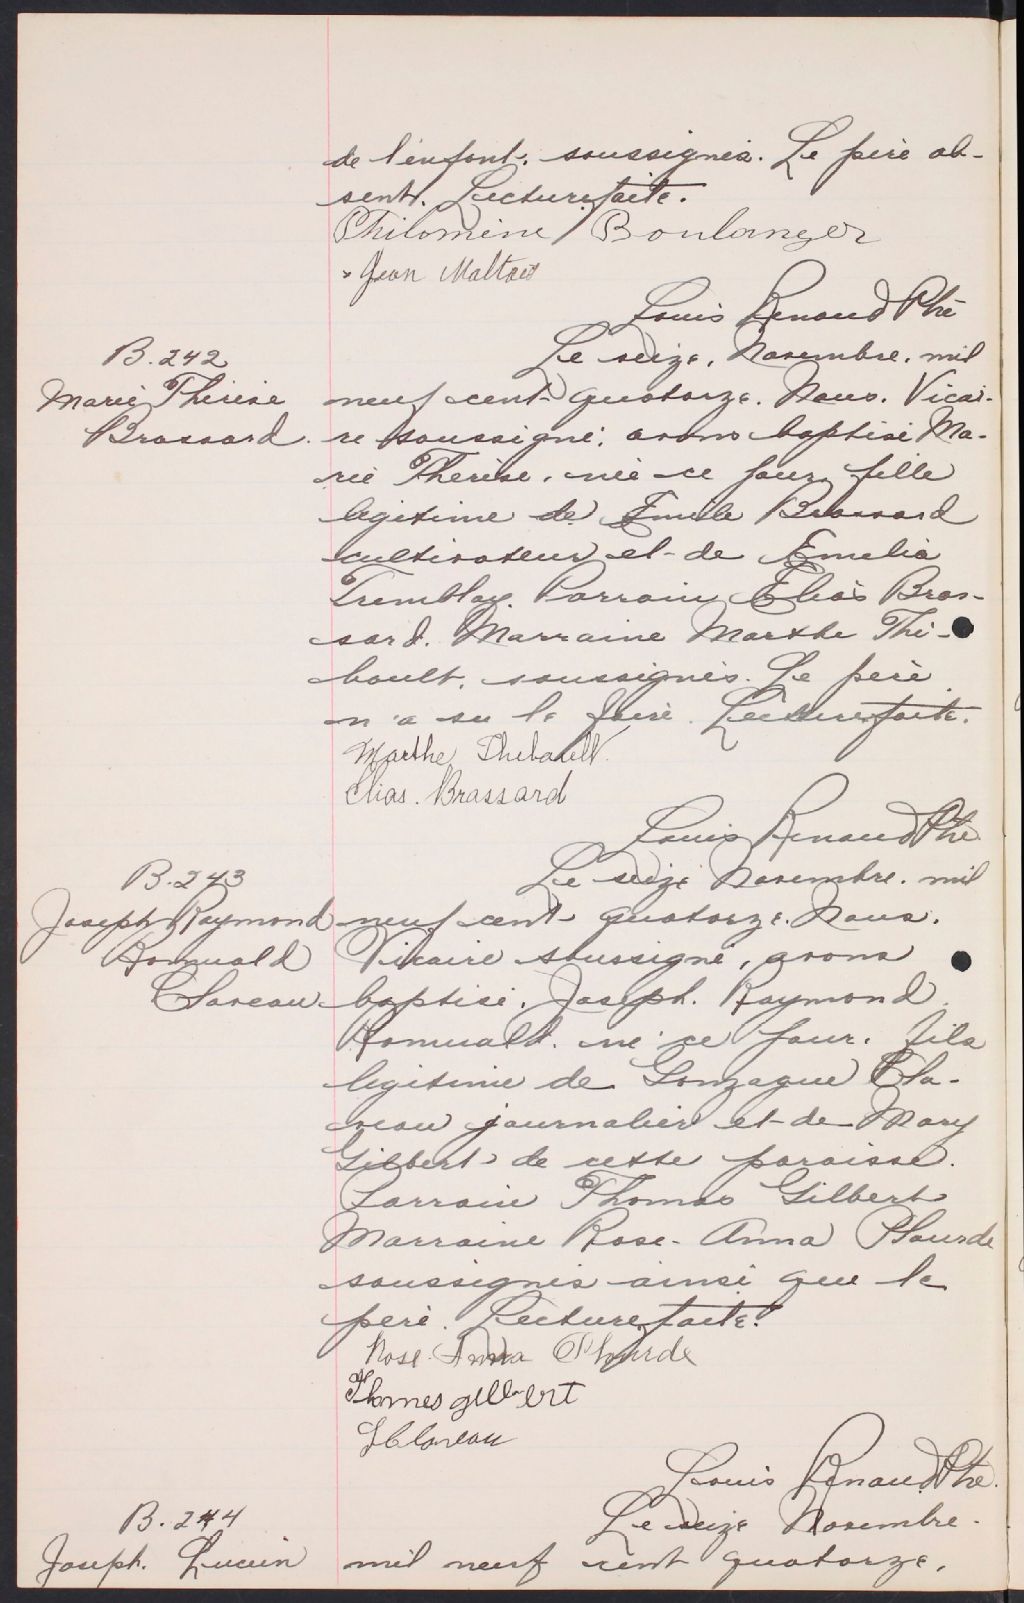 de l'enfant, soussignés. Le père ab-
sent. Lecture faite.
Philomène Boulanger
Jean Maltais
Louis Renaud Ptre
B. 242
Le seize, Novembre, mil
Marie Thérèse
neuf cent quatorze. Nous, Vicai-
Brassard.
re soussigné, avons baptisé Ma-
rie Thérèse, née ce jour, fille
légitime de Emile Brassard
cultivateur et de Emelia
Tremblay. Parrain Elias Bras-
sard. Marraine Marthe Thi-
boult, soussignés. Le père
n'a su le faire. Lecture faite.
Marthe Thibault
Elias. Brassard
Louis Renaud Ptre
B. 243
Le seize Novembre. mil
Joseph Raymond
neuf cent quatorze. Nous.
Romuald
Vicaire soussigné, avons
Claveau
baptisé, Joseph. Raymond
Romuald. né ce jour. fils
légitime de Gonzague Cla-
veau journalier et de Mary
Gilbert de cette paroisse.
Parrain Thomas Gilbert
Marraine Rose-Anna Plourde
soussignés ainsi que le
père. Lecture faite.
Rose-Anna Plourde
Thomes gilbert
G Claveau
Louis Renaud Ptre.
B. 244
Le seize Novembre.
Joseph. Lucien
mil neuf cent quatorze,